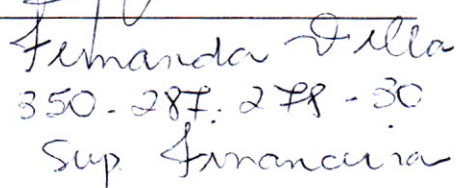 Fernanda Villa
350-287.278-30
Sup. Financeira